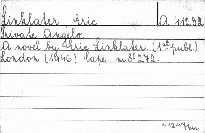 Linklater, Eric A 11292
Private Angelo.
A novel by Eric Linklater. (1st publ.)
London (1946) Cape. m 8° 272.